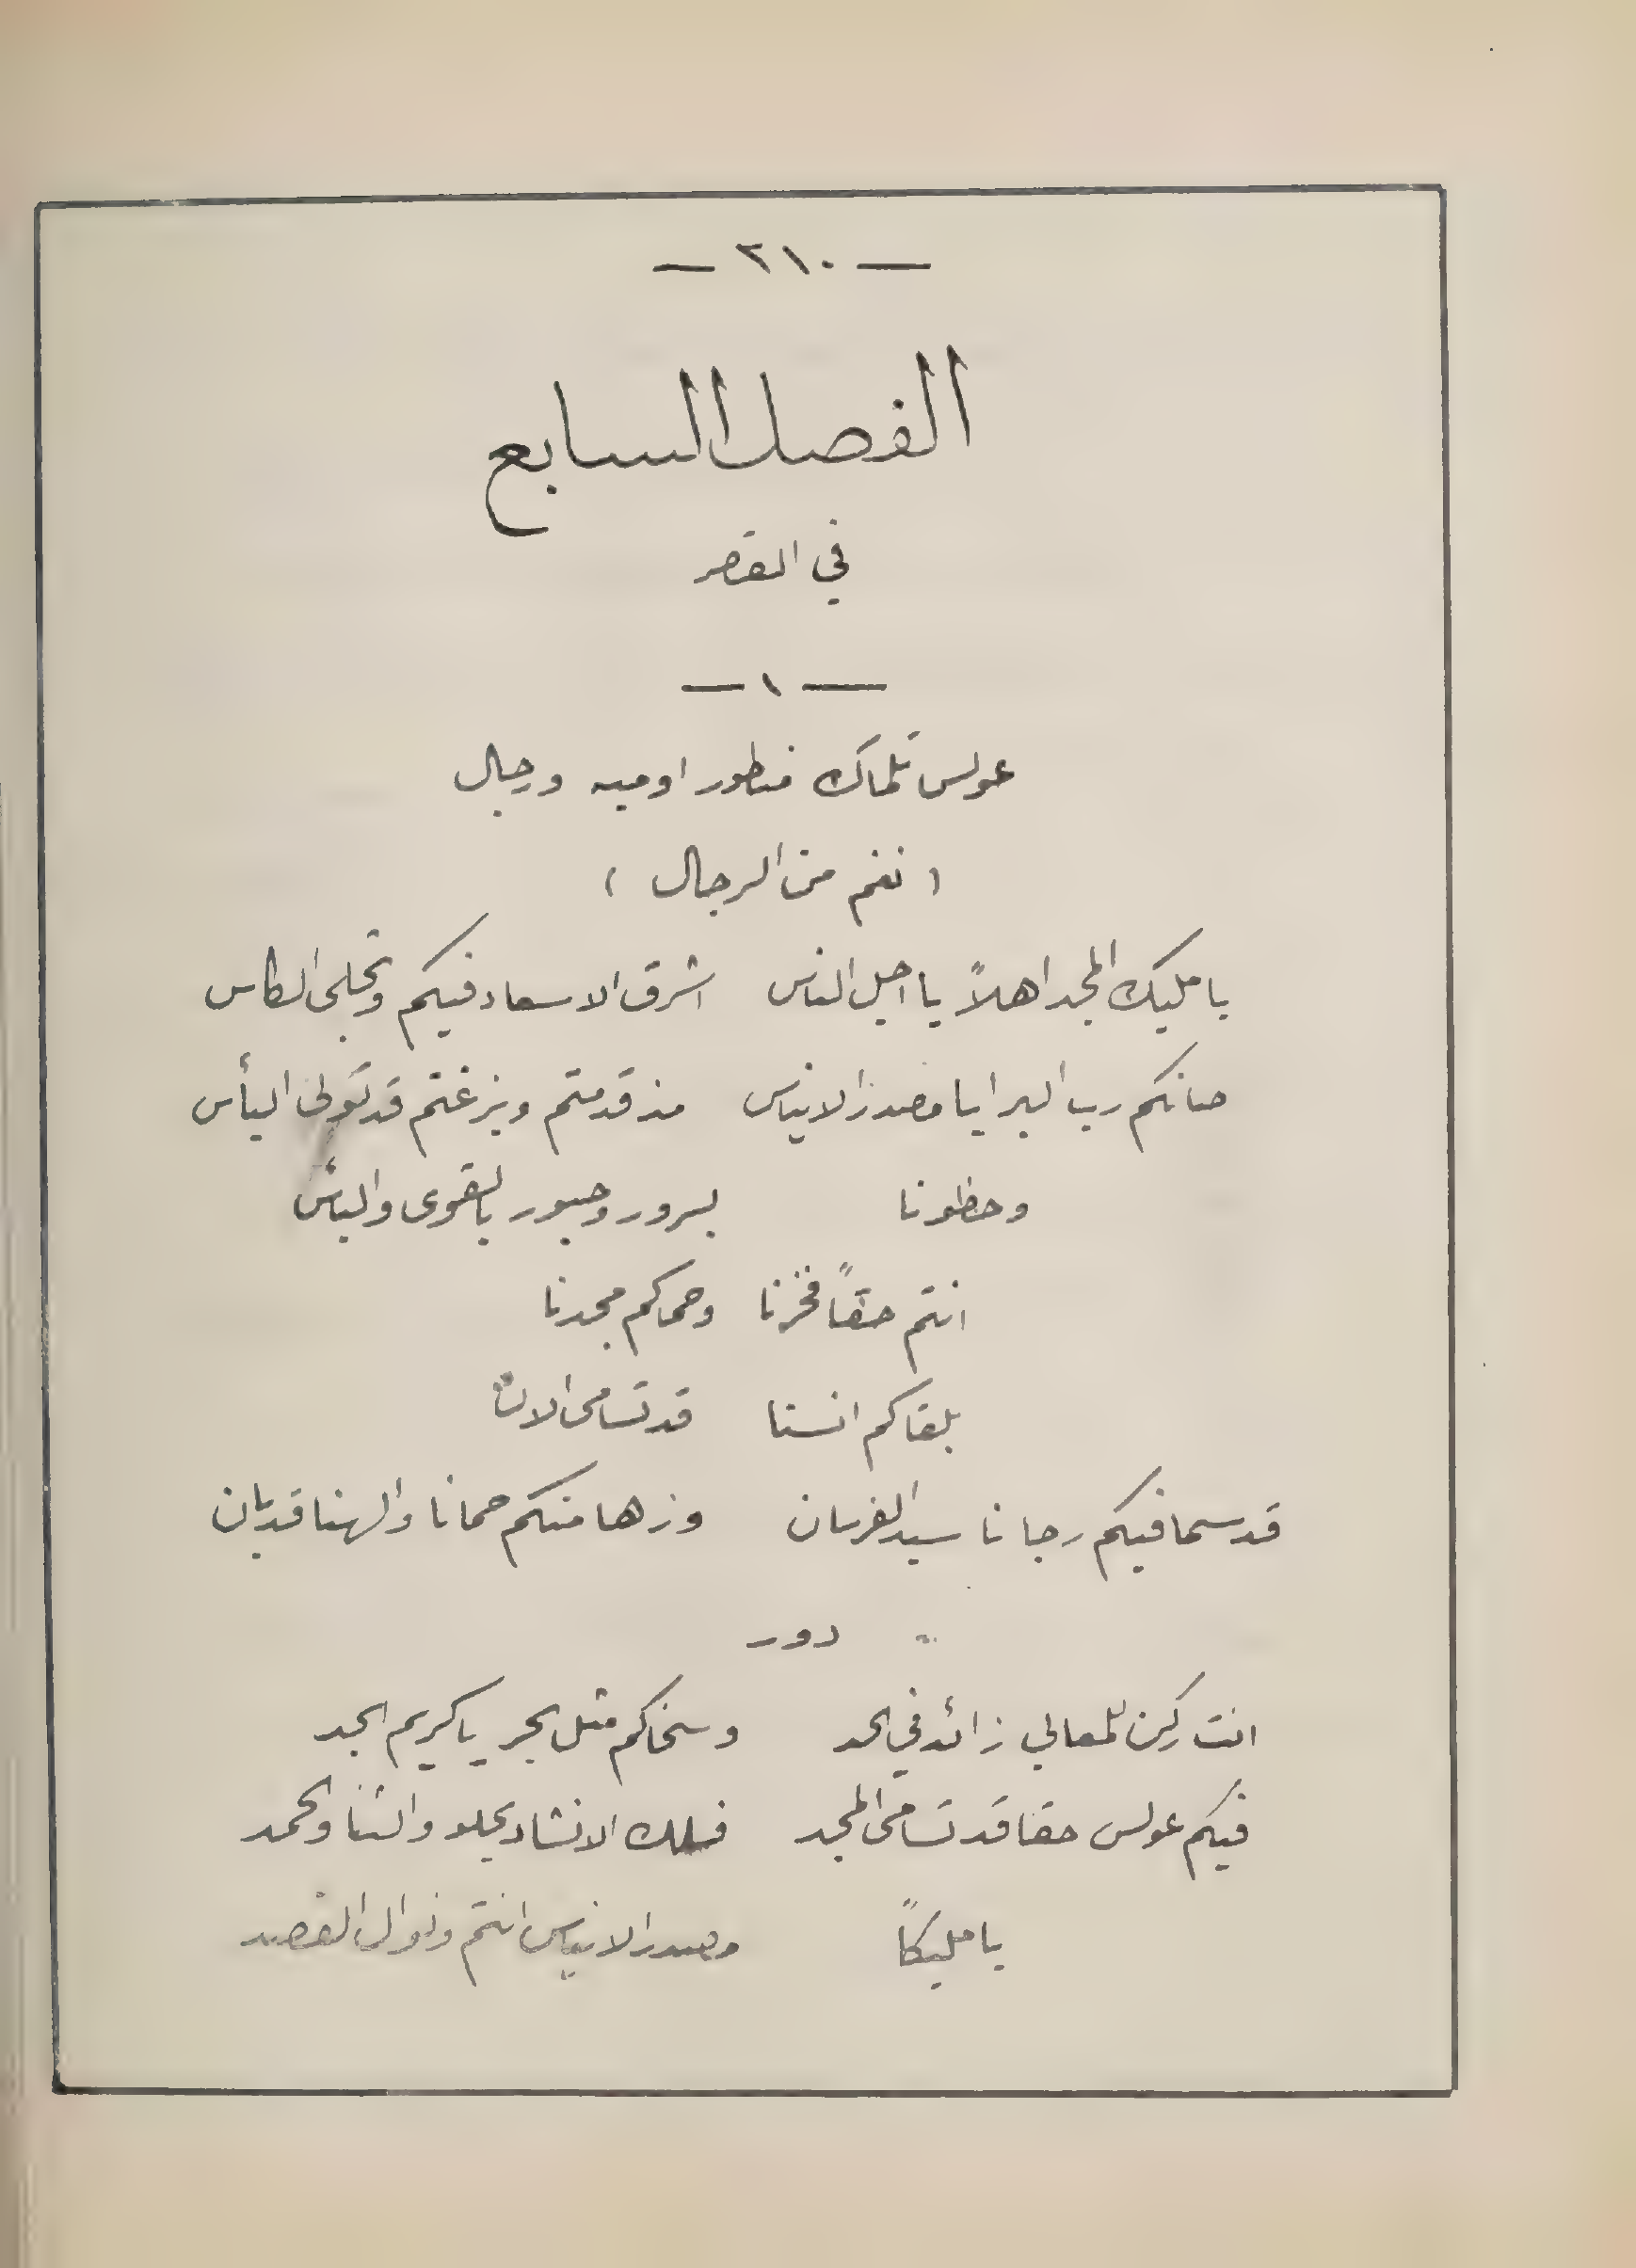 — ٢١٠ —
الفصل السابع
في القصر
— ١ —
عولس تلماك منطور اوميه ورجال
( نغم من الرجال )
يا مليك المجد اهلاً يا اجل الناس اشرق الاسعاد فيكم وتجلى الكاس
صانكم رب البرايا مصدر الايناس مذ قدمتم وبزغتم قد تولى اليأس
وحظونا بسرور وحبور بالقوى والبأس
انتم حقاً فخرنا وحماكم مجدنا
بلقاكم انسنا قد تسامى الان
قد سما فيكم رجانا سيد الفرسان وزها منكم حمانا والهنا قد بان
دور
انت ركن للمعالي زائد في الحد وسخاكم مثل بحر يا كريم الجد
فيكم عولس حقا قد تسامى المجد فلك الانشاد يحلو والثنا والحمد
يا مليكاً مصدر الايناس انتم ونوال القصد